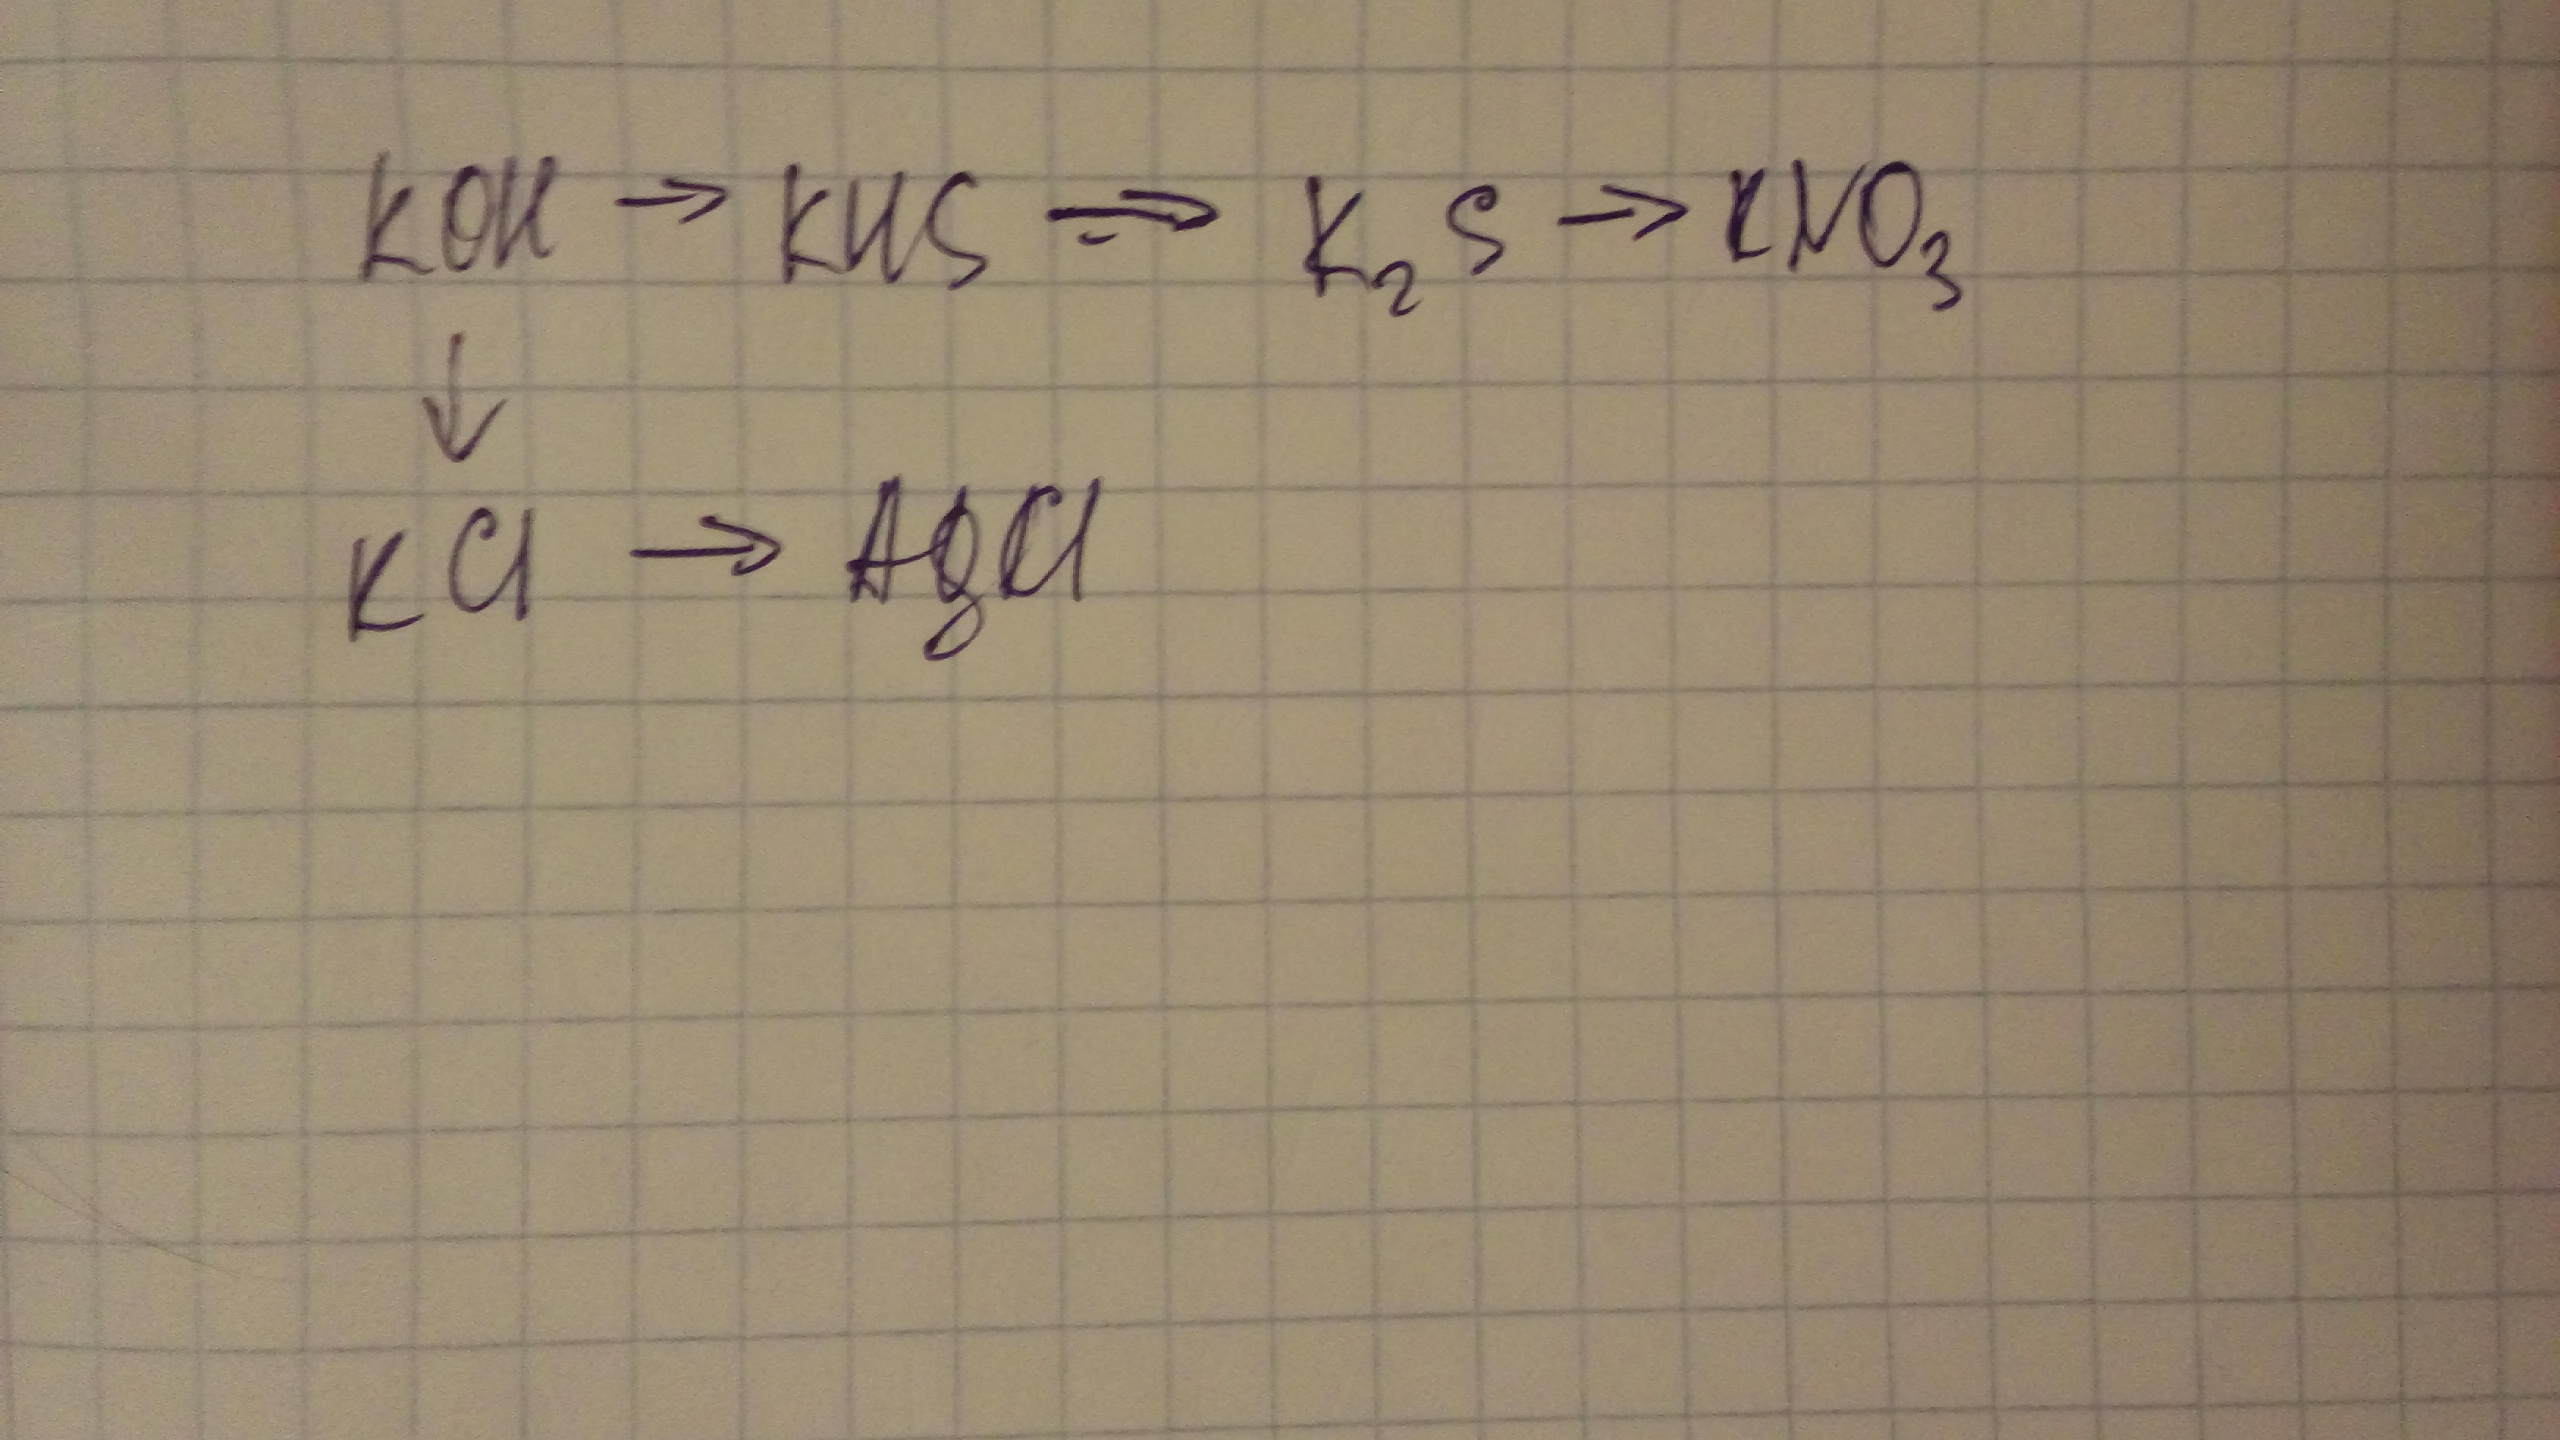 KOH → KHS → K₂S → KNO₃
↓
KCl → AgCl